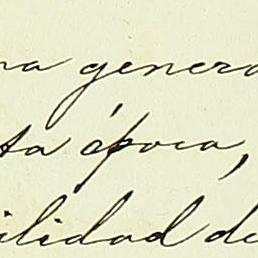 na genera
ta época,
ilidad de